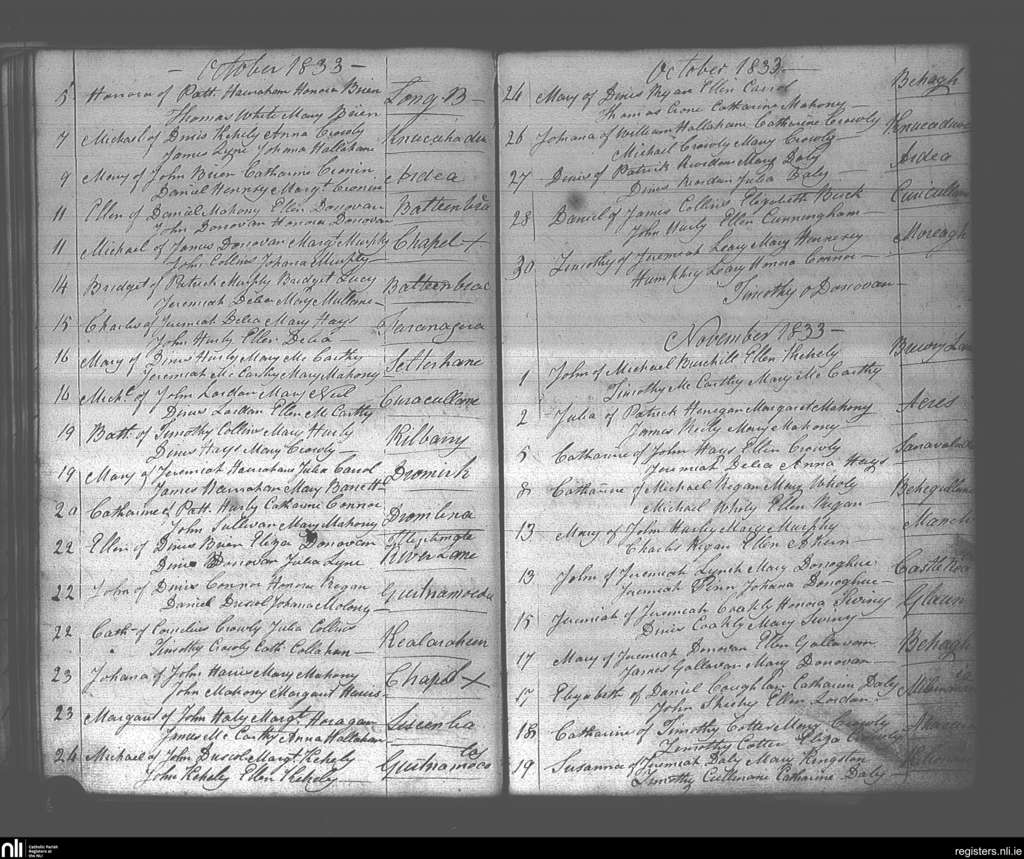 October 1833
5 Honora of Patt. Hanrahan Honora Brien Long B
Thomas White Mary Brien
7 Michael of Denis Kehely Anna Crowly
James Lyne Johana Hallahane
9 Mary of John Brien Catharine Cronin Ardea
Daniel Hennesy Margt. Cronin
11 Ellen of Daniel Mahony Ellen Donovan
John Donovan Honora Donovan
11 Michael of James Donovan Margt. Murphy Chapel +
John Collins Johana Murphy
14 Bridget of Patrick Murphy Bridget Lucy
Jeremiah Delea Mary Mullane
15 Charles of Jeremiah Delea Mary Hays
John Hurly Ellen Delea
16 Mary of Denis Hurly Mary Mc Carthy
Jeremiah Mc Carthy Mary Mahony
16 Michl. of John Lordan Mary Curacullane
Denis Lordan Ellen Mc Carthy
19 Batt. of Timothy Collins Mary Hurly Kilbarry
Denis Hays Mary Crowly
19 Mary of Jeremiah Hanrahan Julia Carrol
James Hanrahan Mary Barrett
20 Catharine of Patt. Hurly Catharine Connor Dromlina
John Sullivan Mary Mahony
22 Ellen of Denis Brien Eliza Donovan
Denis Donovan Julia Lyne
22 John of Denis Connor Honora Regan
Daniel Driscol Johana Molony
22 Cath. of Cornelius Crowly Julia Collins
Timothy Crowly Cath. Callahan
23 Johana of John Harris Mary Mahony Chapel +
John Mahony Margaret Harris
23 Margaret of John Haly Margt. Horagan
James Mc Carthy Anna Hallahan
24 Michael of John Driscol Margt. Kehely
John Kehely Ellen Kehely
October 1833
24 Mary of Denis Ryan Ellen Carrol Behagh
Thomas Crone Catharine Mahony
26 Johana of William Hallahane Catharine Crowly
Michael Crowly Mary Crowly
27 Denis of Patrick Riordan Mary Daly Ardea
Denis Riordan Julia Daly
28 Daniel of James Collins Elizabeth Buck
John Hurly Ellen Cunningham
30 Timothy of Jeremiah Leary Mary Hennesey Moreagh
Humphry Leary Honora Connor
Timothy O Donovan
November 1833
1 John of Michael Burchill Ellen Kehely
Timothy Mc Carthy Mary Mc Carthy
2 Julia of Patrick Henegan Margaret Mahony Acres
James Kiely Mary Mahony
5 Catharine of John Hays Ellen Crowly
Jeremiah Delea Anna Hays
8 Catharine of Michael Regan Mary Whely
Michael Whely Ellen Regan
13 Mary of John Hurly Mary Murphy
Charles Regan Ellen
13 John of Jeremiah Lynch Mary Donoghue
Jeremiah Johana Donoghue
15 Jeremiah of Jeremiah Coakly Honora Swiny
Denis Coakly Mary Swiny
17 Mary of Jeremiah Donovan Ellen Gallavan Behagh
James Gallavan Mary Donovan
17 Elizabeth of Daniel Coughlan Catharine Daly
John Sheehy Ellen Lordan
18 Catharine of Timothy Cotter Mary Crowly
Timothy Cotter Eliza
19 Susanna of Jeremiah Daly Mary Kingston
Timothy Cullinane Catharine Daly
nli Catholic Parish
Registers at
the NLI
registers.nli.ie